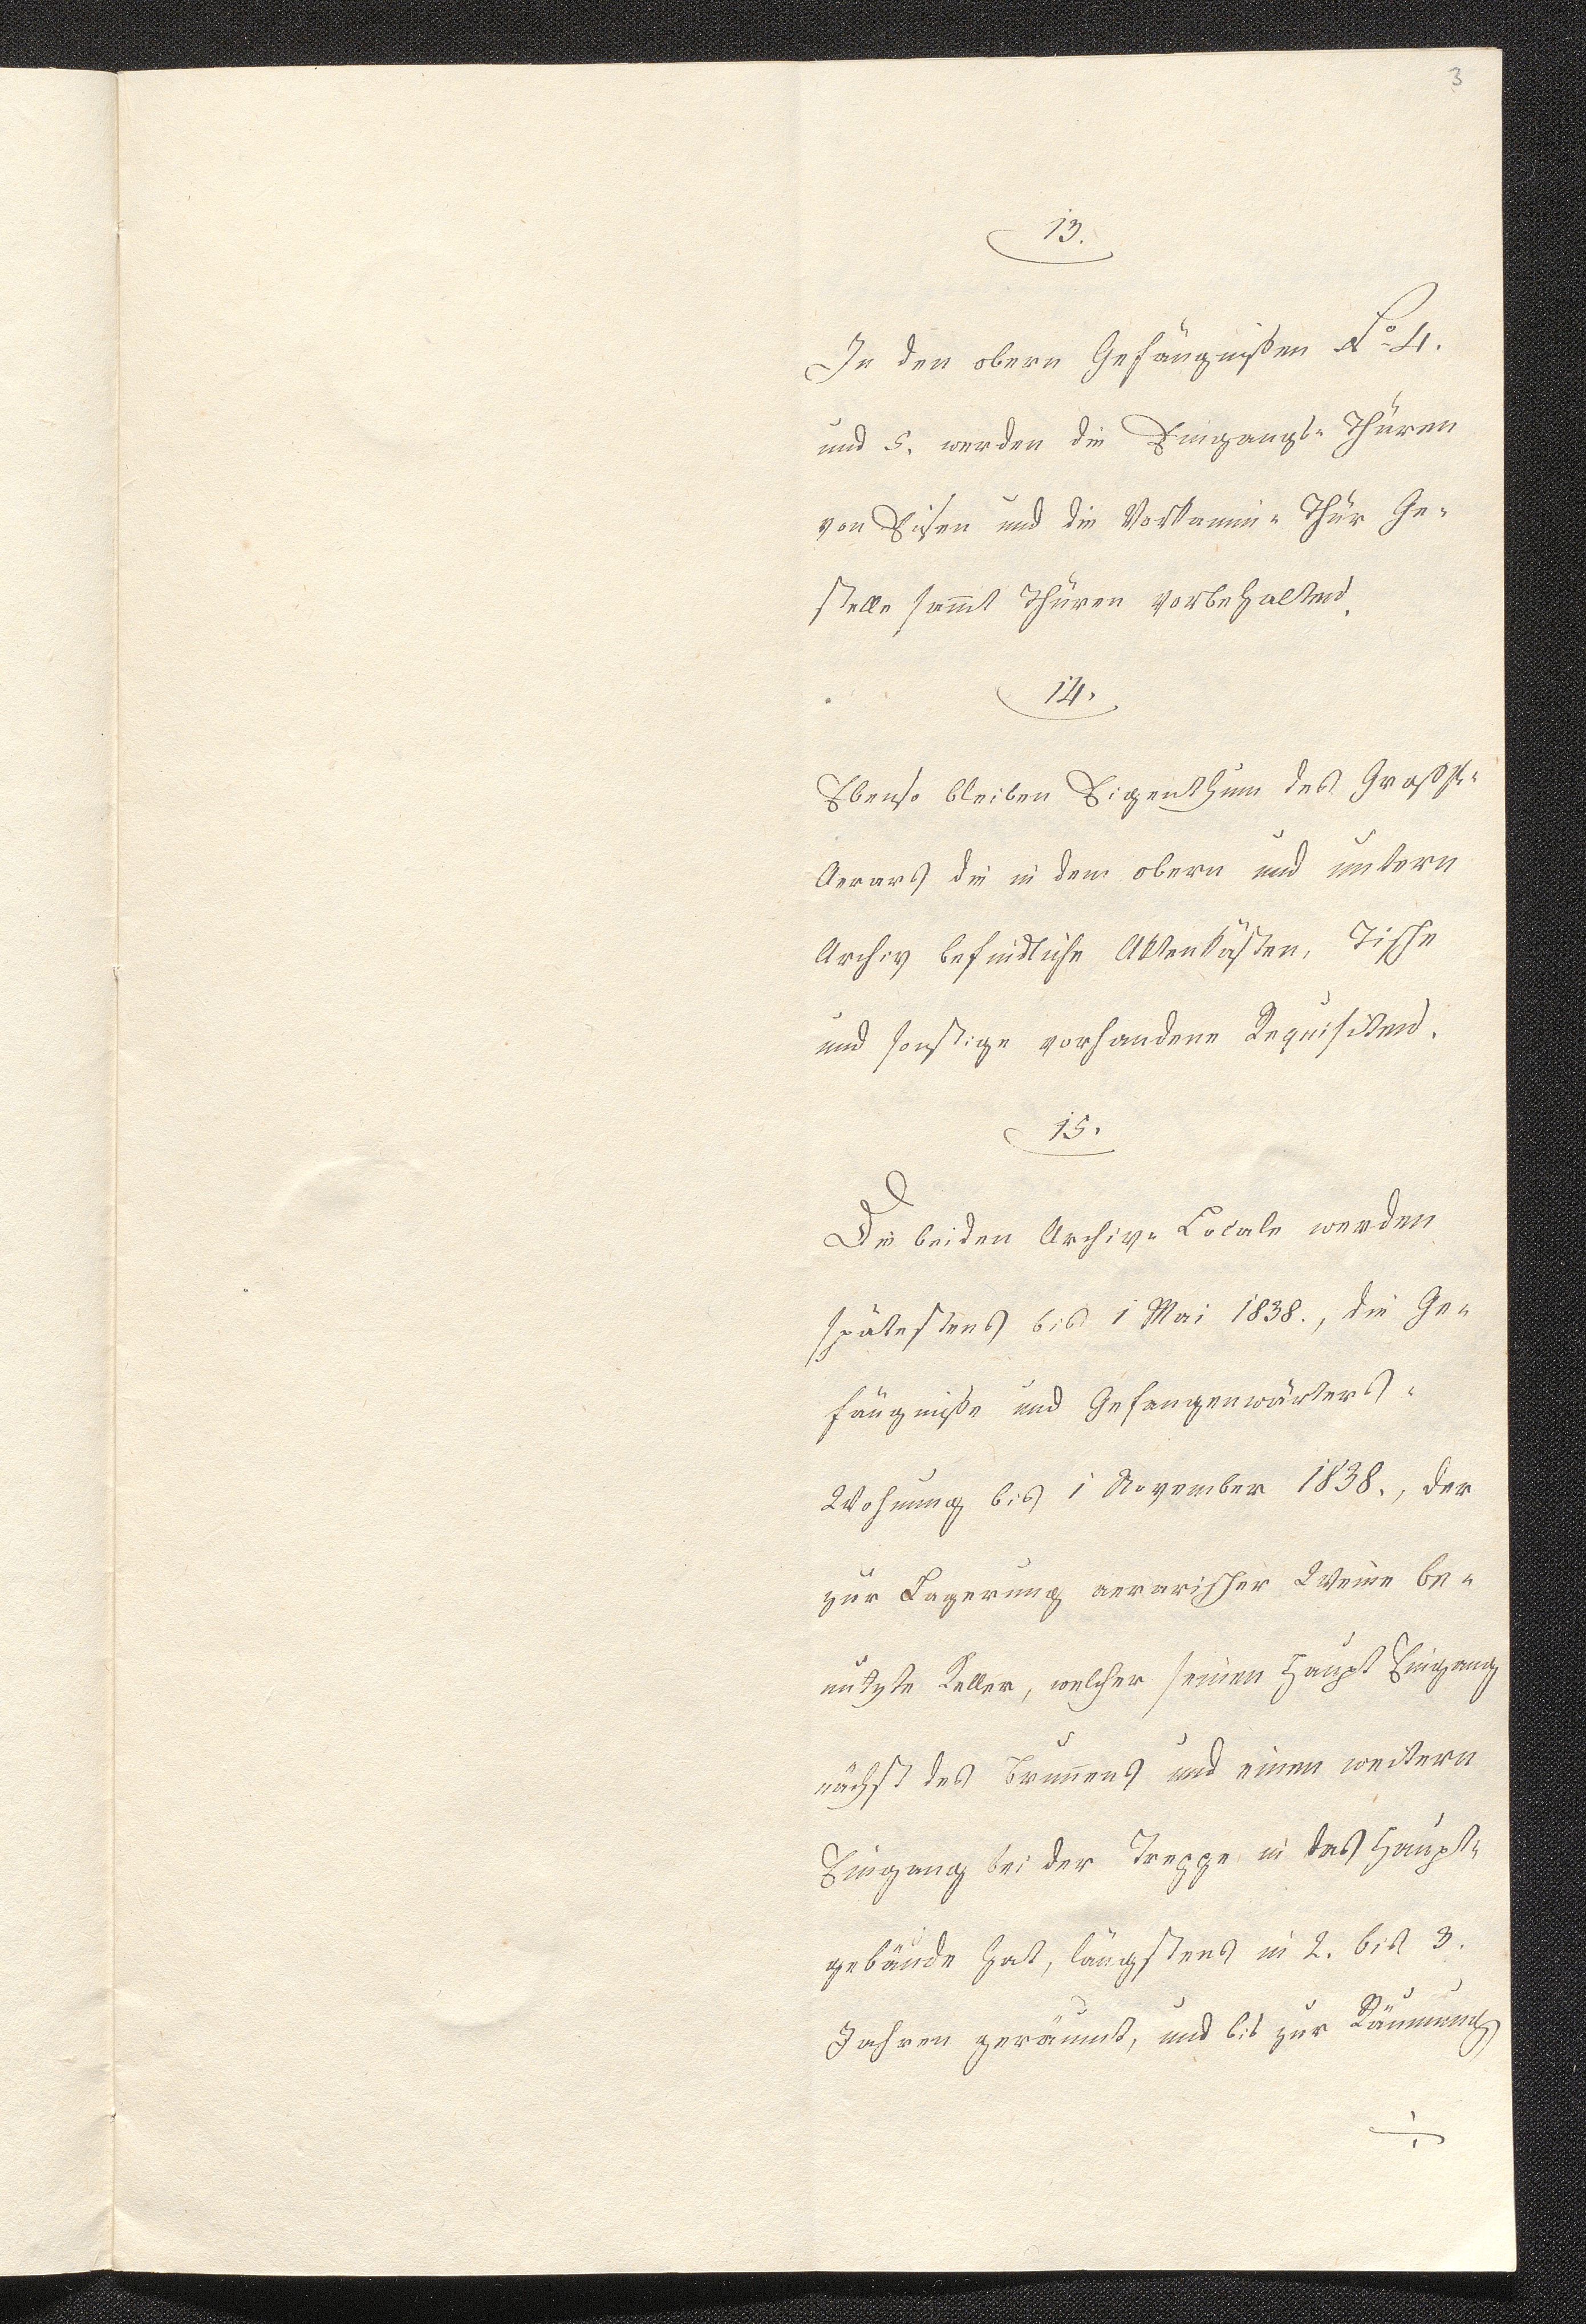 3
13.
In den obern Gefängnißen No 4.
und 5. werden die Eingangs- Thüren
von Eisen und die Vorkamin- Thür Ge-
stelle samt Thüren vorbehalten.
14.
Ebenso bleiben Eigenthum des Großh-
Aerars die in dem obern und untern
Archiv befindliche Aktenkästen, Tische
und sonstige vorhandene Requisiten.
15.
Die beiden Archiv- Locale werden
spätestens bis 1 Mai 1838., die Ge-
fängniße und Gefangenwärters-
Wohnung bis 1 November 1838., der
zur Lagerung aerarischer Weine be-
nutzte Keller, welcher seinen Haupt Eingang
nächst des Brunnens und einen weitern
Eingang bei der Treppe in das Haupt-
gebäude hat, längstens in 2. bis 3.
Jahren geräumt, und bis zur Räumung